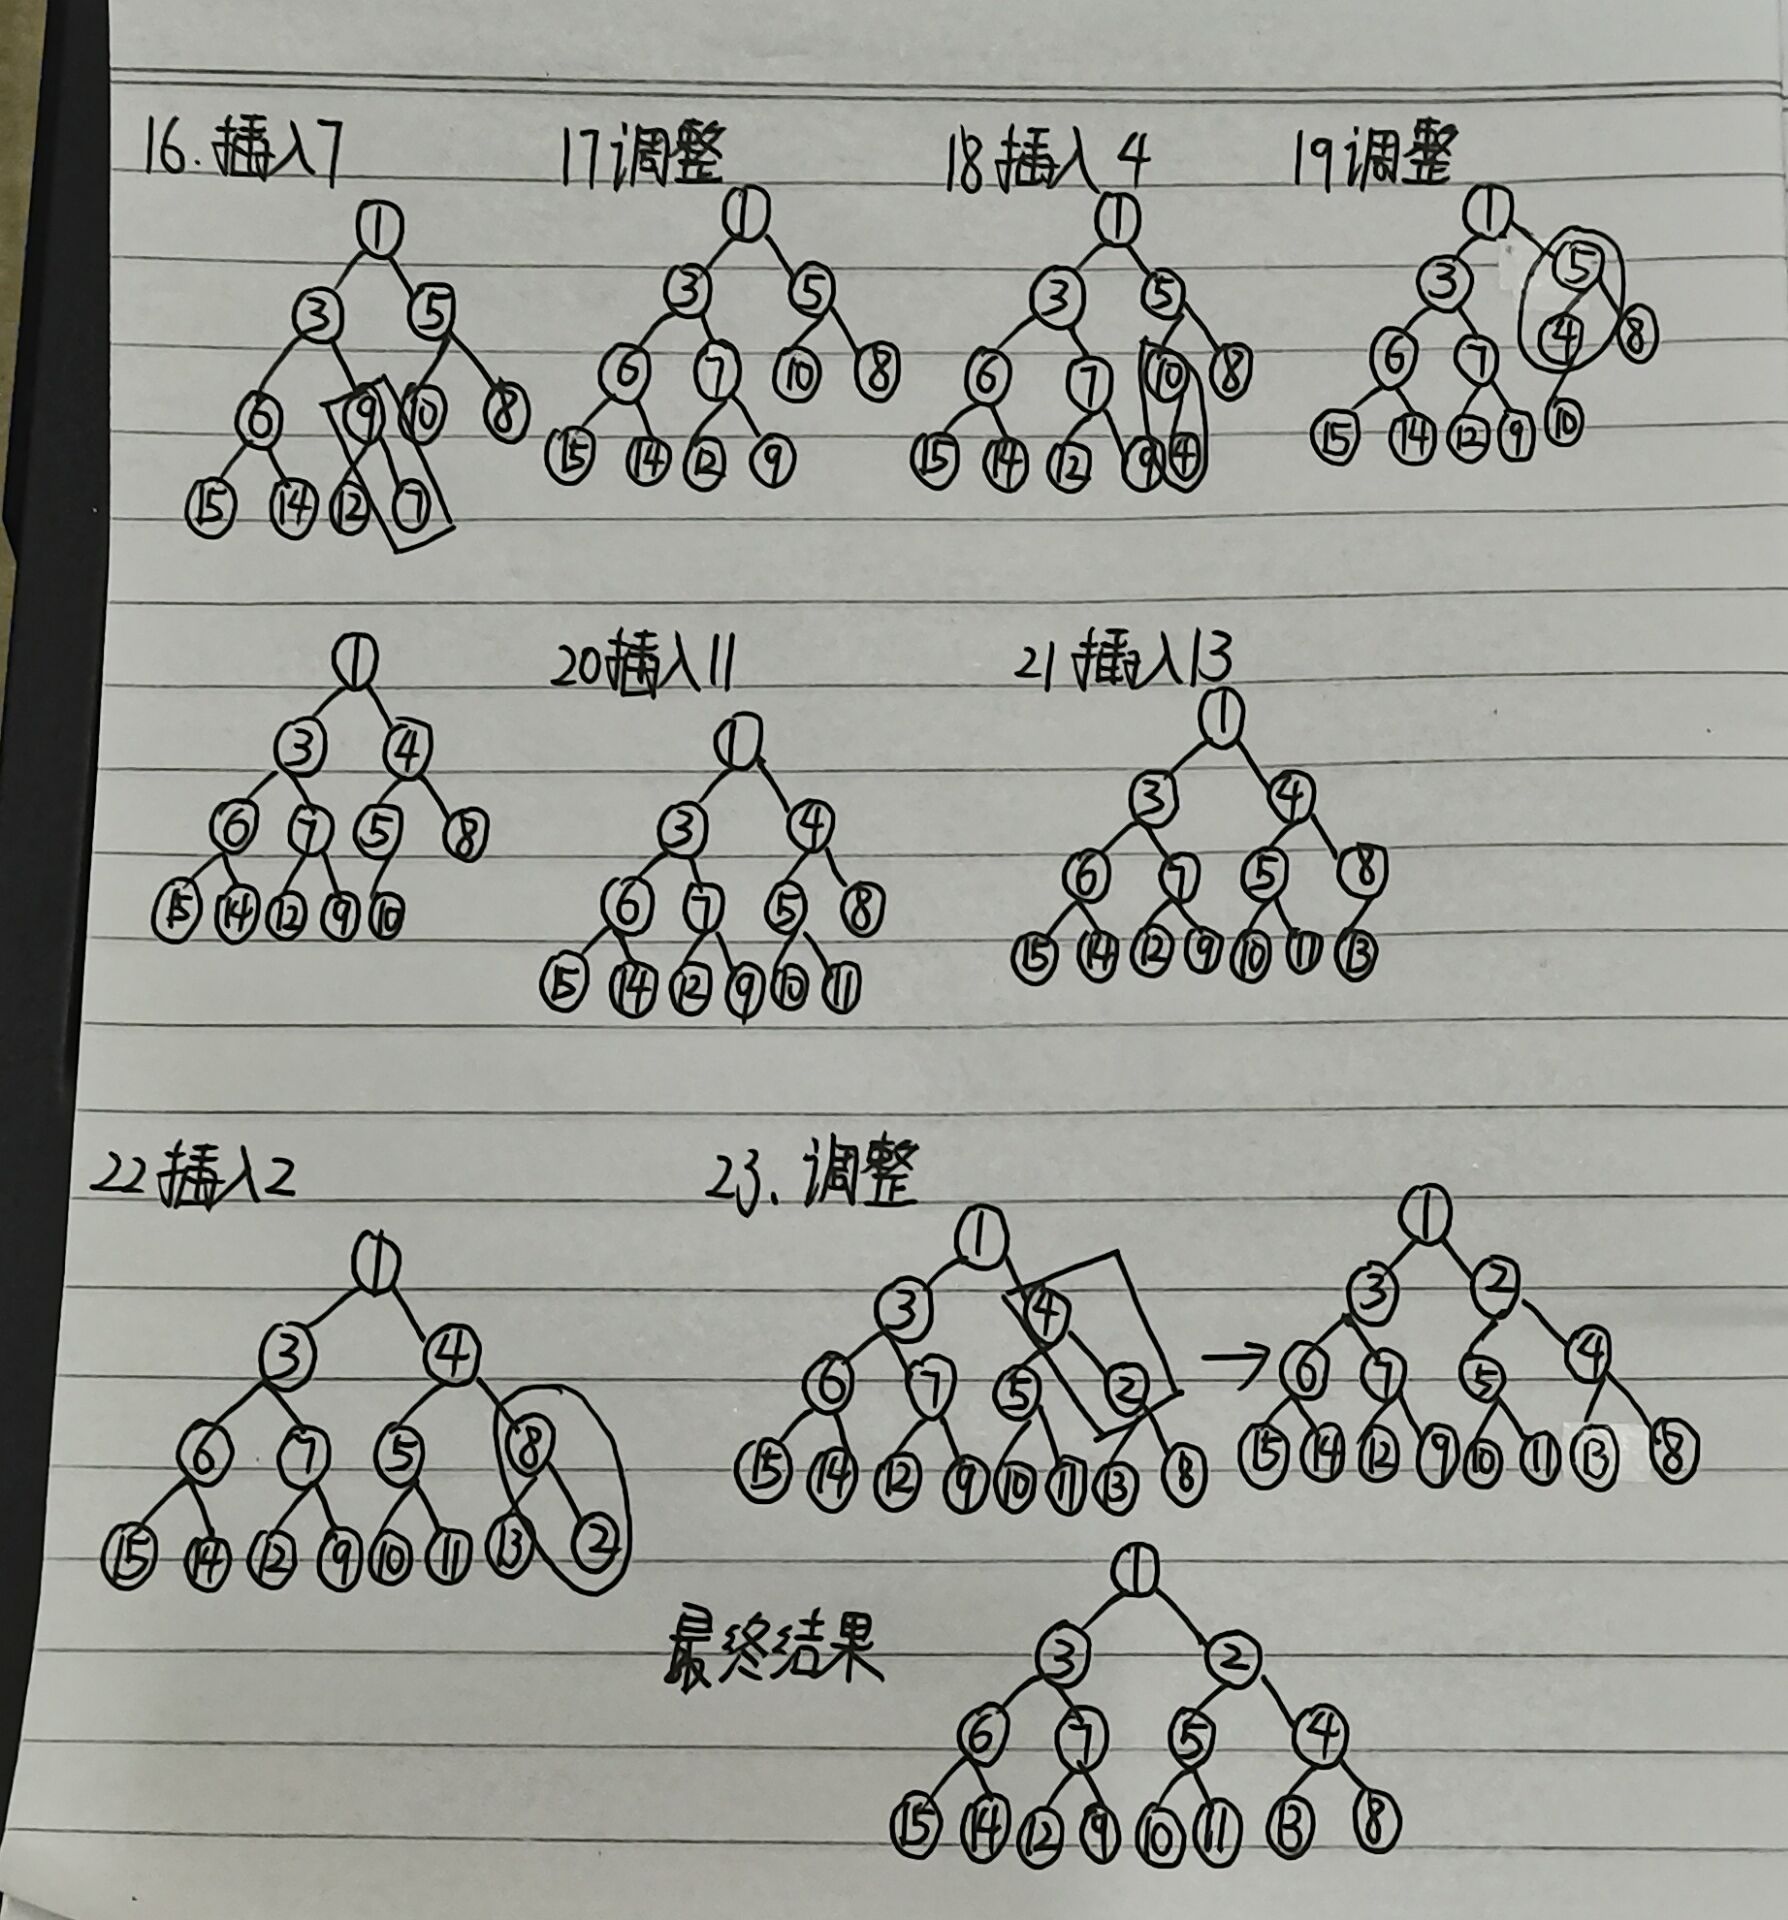 16. 插入7 17调整 18插入 4 19调整
1 1 1 1
3 5 3 5 3 5 3 5
6 9 10 8 6 7 10 8 6 7 10 8 6 7 4 8
15 14 12 7 15 14 12 9 15 14 12 9 4 15 14 12 9 10
20插入11 21 插入13
1 1 1
3 4 3 4 3 4
6 7 5 8 6 7 5 8 6 7 5 8
15 14 12 9 10 15 14 12 9 10 11 15 14 12 9 10 11 13
22插入2 23. 调整
1 1 1
3 4 3 4 3 2
6 7 5 8 6 7 5 2 → 6 7 5 4
15 14 12 9 10 11 13 2 15 14 12 9 10 11 13 8 15 14 12 9 10 11 13 8
最终结果
1
3 2
6 7 5 4
15 14 12 9 10 11 13 8